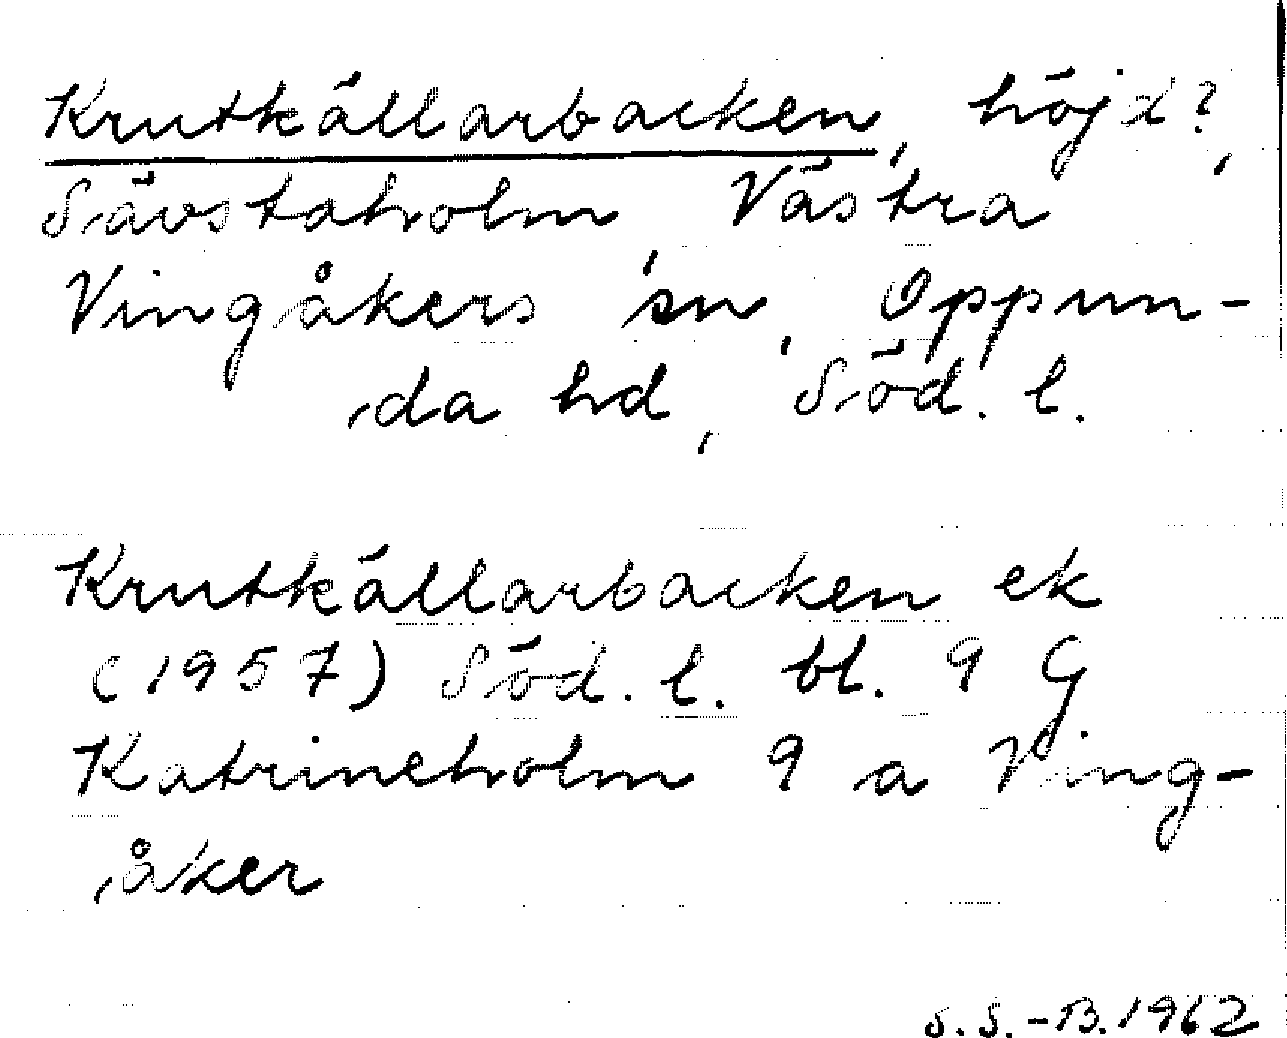 Krutkällarbacken, höjd?,
Sävstaholm, Västra
Vingåkers sn, Oppun-
da hd, Söd. l.
Krutkällarbacken ek
(1957) Söd. l. bl. 9 G
Katrineholm 9 a Ving-
åker
S.S.-B. 1962